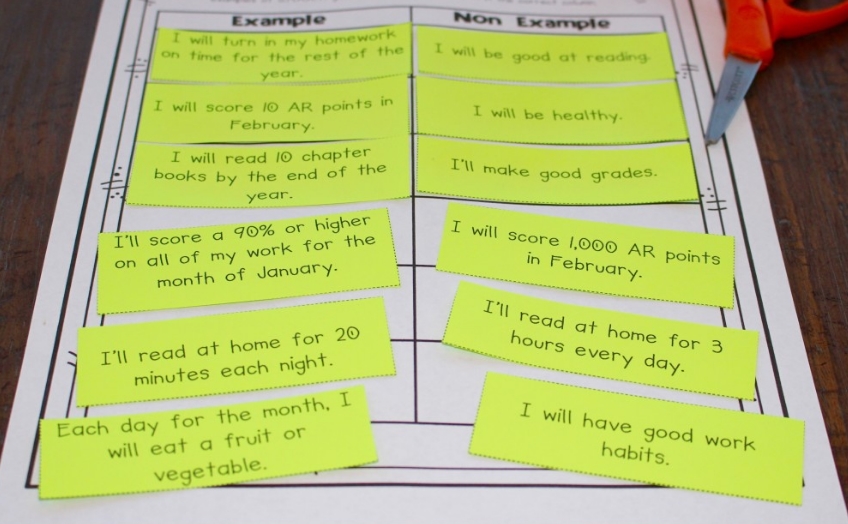 Example
Non Example
I will turn in my homework
on time for the rest of the
year.
I will be good at reading.
I will score 10 AR points in
February.
I will be healthy.
I will read 10 chapter
books by the end of the
year.
I'll make good grades.
I'll score a 90% or higher
on all of my work for the
month of January.
I will score 1,000 AR points
in February.
I'll read at home for 20
minutes each night.
I'll read at home for 3
hours every day.
Each day for the month, I
will eat a fruit or
vegetable.
I will have good work
habits.